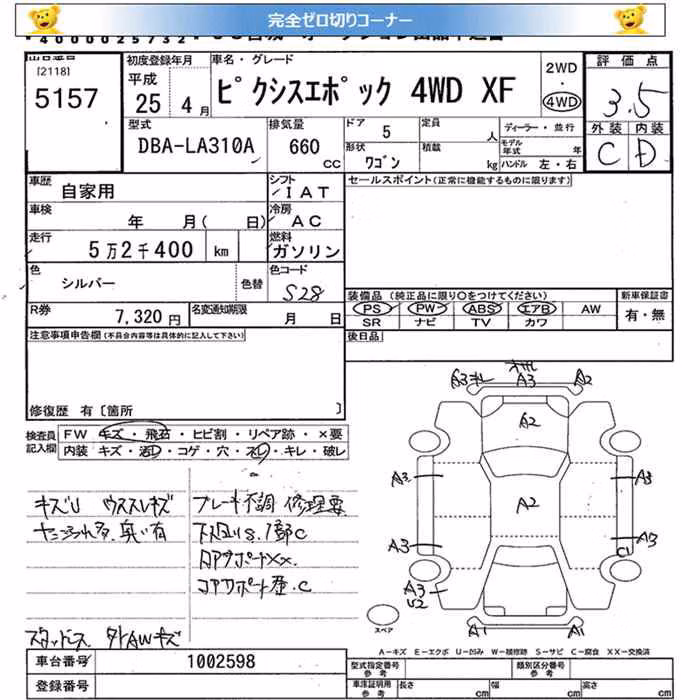 完全ゼロ切りコーナー
出品番号
[2118]
5157
初度登録年月
平成
25 4月
車名・グレード
ピクシスエポック 4WD XF
2WD
・
4WD
評価点
3.5
外装 内装
C D
型式
DBA-LA310A
排気量
660
CC
ドア 5
形状 ワゴン
定員 人
積載 kg
ディーラー・並行
モデル年式 年
ハンドル 左・右
車歴 自家用
シフト IAT
車検 年 月( 日)
冷房 AC
走行 5万2千400 km
燃料 ガソリン
色 シルバー 色替
色コード S28
R券 7,320円
名変通知期限 月 日
セールスポイント(正常に機能するものに限ります)
装備品(純正品に限り○をつけてください)
PS PW ABS エアB AW
SR ナビ TV カワ
新車保証書
有・無
後日品
注意事項申告欄(不具合内容等は具体的に記入して下さい)
修復歴 有〔箇所 〕
検査員記入欄
FW キズ・飛石・ヒビ割・リペア跡・×要
内装 キズ・汚れ・コゲ・穴・スレ・キレ・破レ
キズU ウススレキズ
ブレーキ不調 修理要
下廻りS.1部C
コアサポート歴.C
スタッドレス 外AWキズ
A3 A3 A2
A2
A3 A3
A2
A3 A3
C1
A3
U2
A1 A1
スペア
A-キズ E-エクボ U-凹み W-補修跡 S-サビ C-腐食 XX-交換済
車台番号 1002598
登録番号
型式指定番号 参考
類別区分番号 参考
車庫証明用 参考
長さ cm 幅 cm 高さ cm